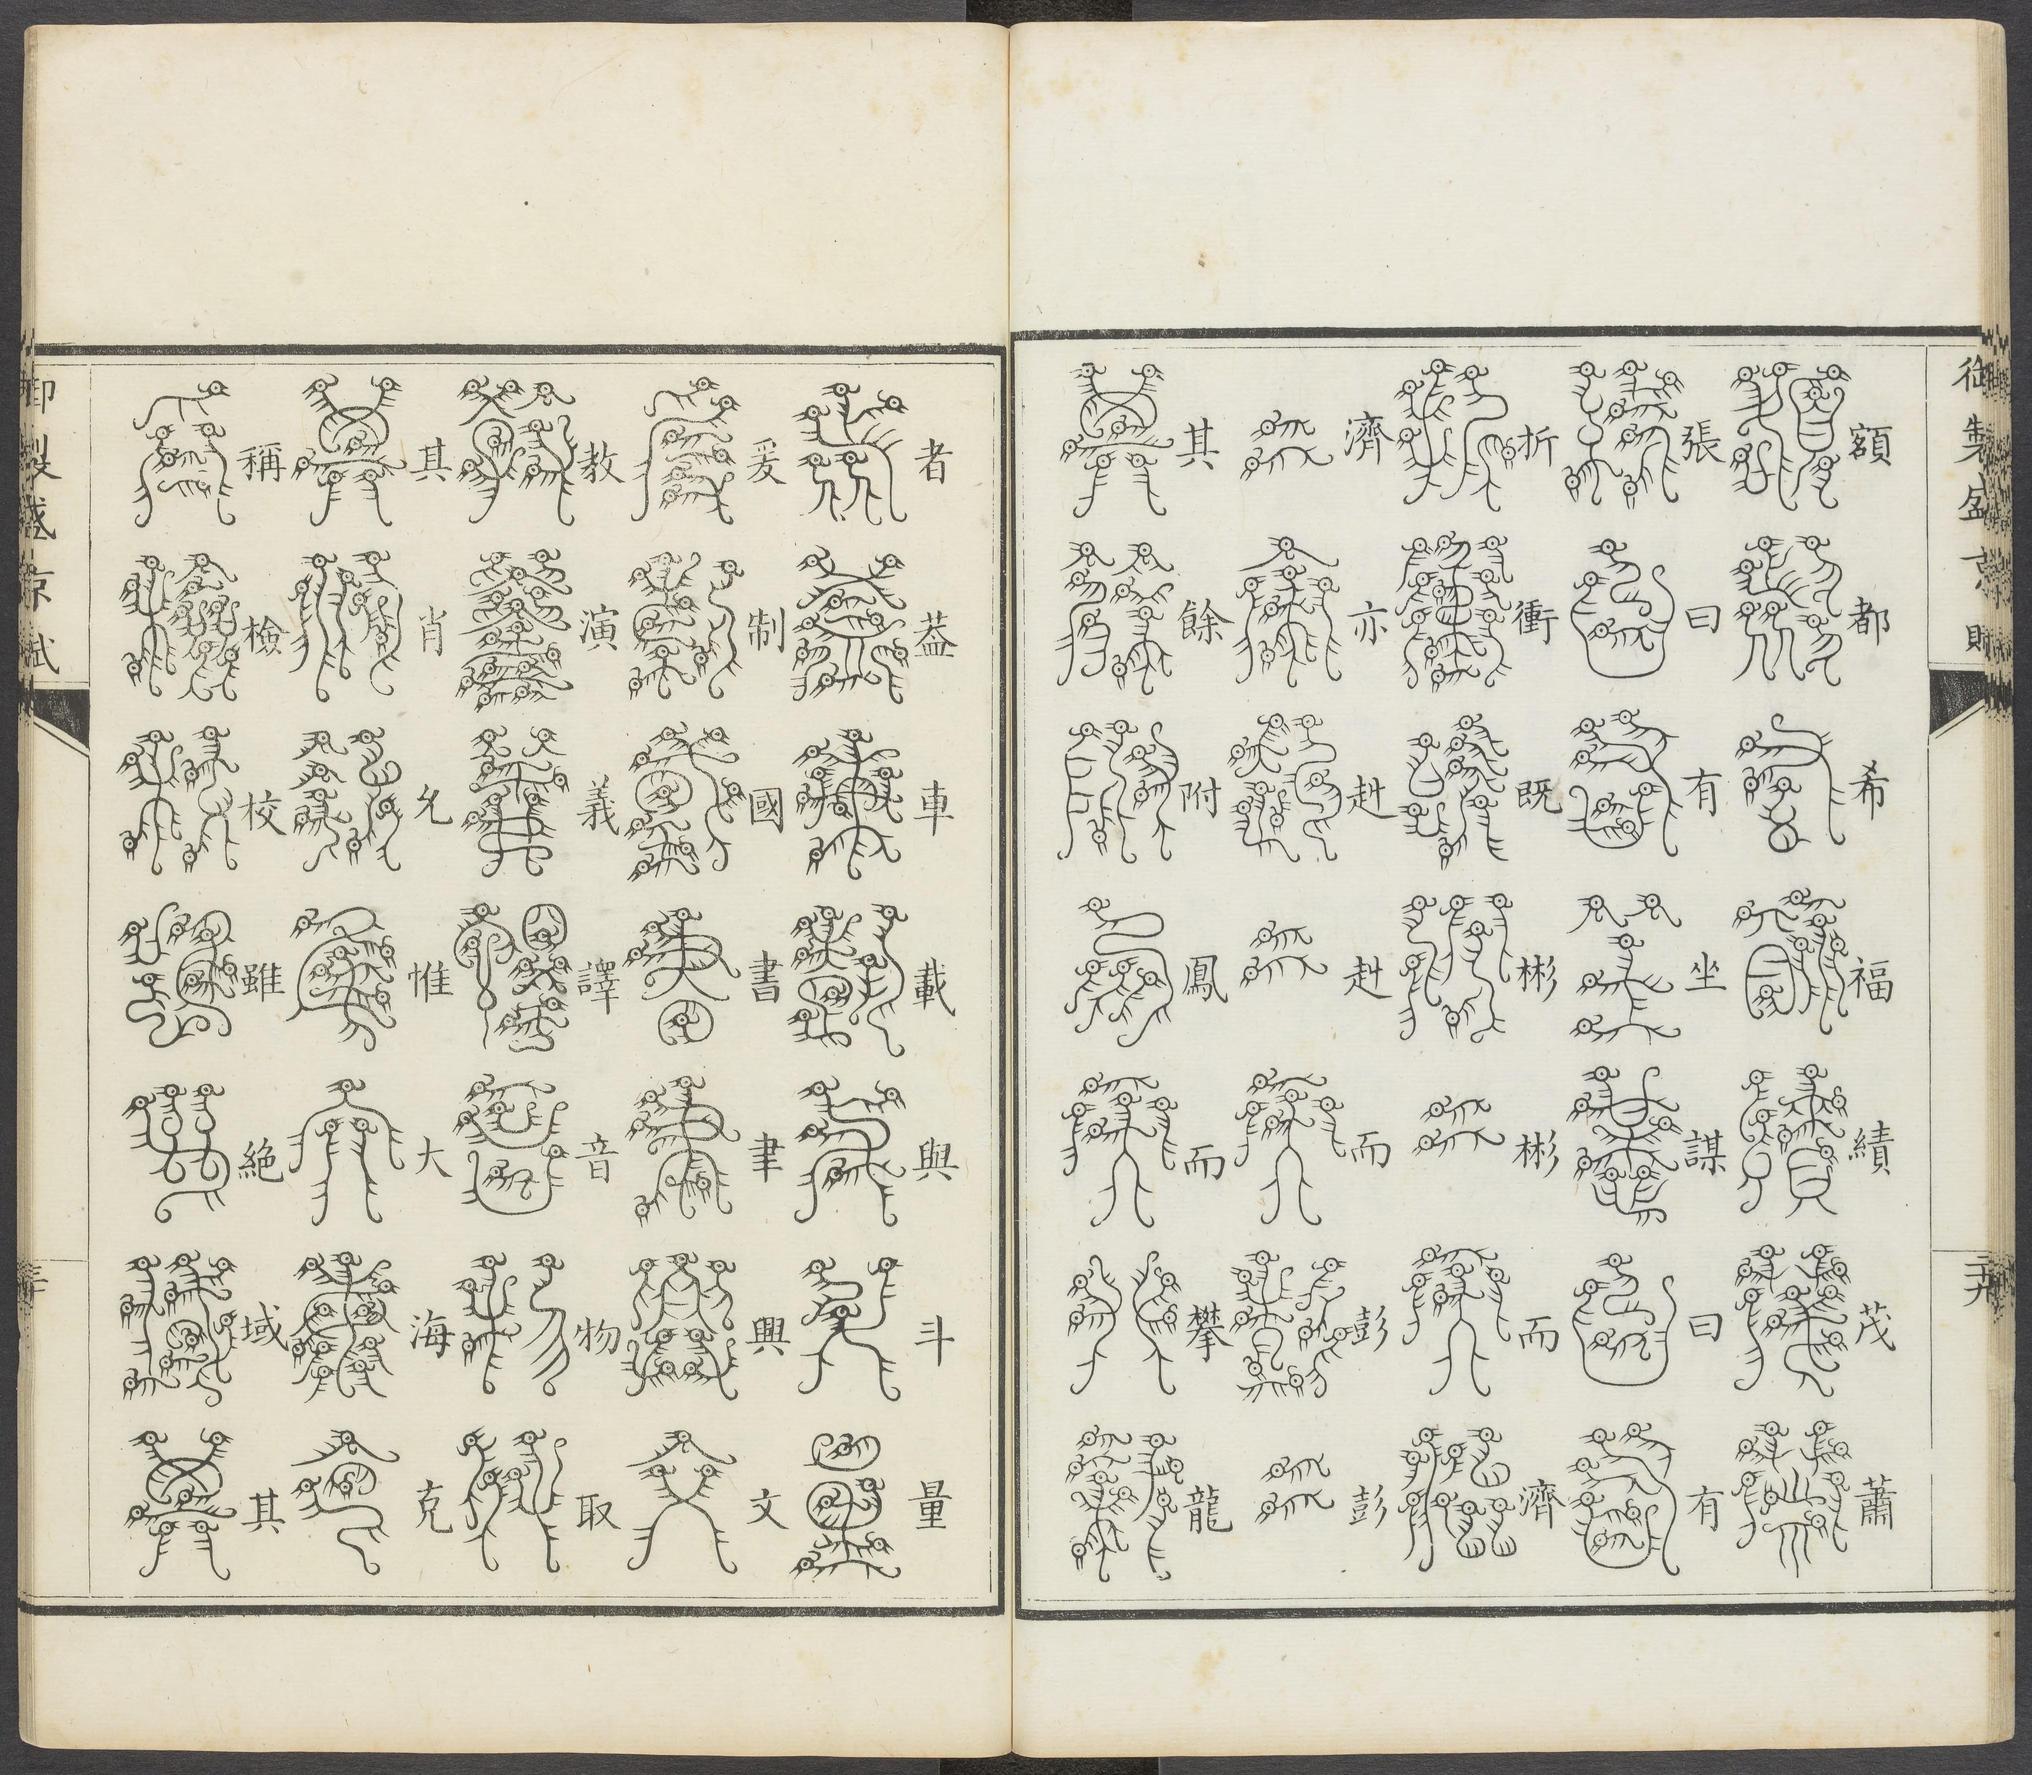 御製盛京賦
額都希福績茂蕭
張曰有坐謀曰有
折衝既彬彬而濟
濟亦赳赳而彭彭
其餘附鳳而攀龍
者蓋車載與斗量
爰制國書聿興文
教演義譯音物取
其肖允惟大海克
稱檢校雖絶域其
御製盛京賦